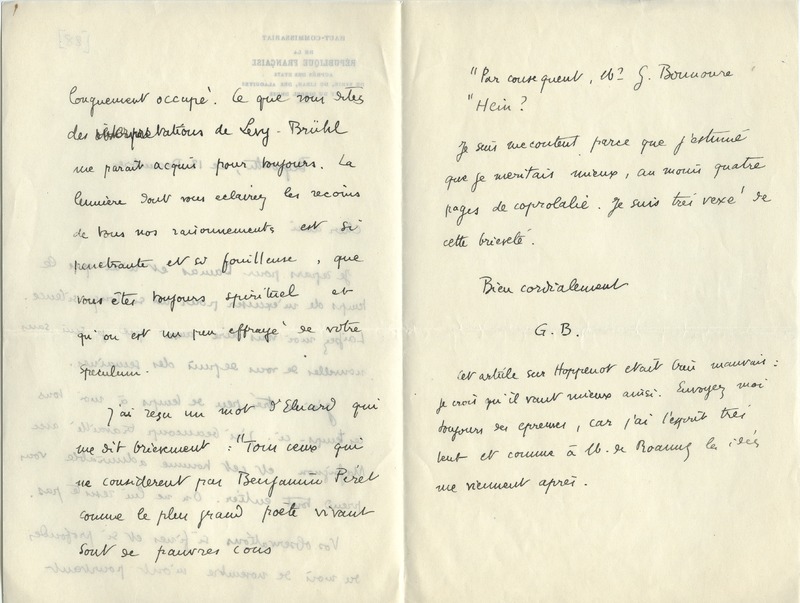 longuement occupé. Ce que vous dites
des interpretations de Levy-Brühl
me parait acquis pour toujours. La
lumière dont vous eclairez les recoins
de tous nos raisonnements est si
penetrante et si fouilleuse, que
vous êtes toujours spirituel et
qu'on est un peu effrayé de votre
speculum.
J'ai reçu un mot d'Eluard qui
me dit brievement : "Tous ceux qui
ne considerent pas Benjamin Peret
comme le plus grand poete vivant
sont de pauvres cons
"Par consequent, Mr G. Bounoure
"Hein ?
Je suis mecontent parce que j'estimé
que je meritais mieux, au moins quatre
pages de coprolalie. Je suis tres vexé de
cette brieveté.
Bien cordialement
G. B.
Cet article sur Hoppenot etait bien mauvais :
je crois qu'il vaut mieux ainsi. Envoyez moi
toujours des epreuves, car j'ai l'esprit tres
lent et comme à M. de Roannez les idées
me viennent après.
HAUT-COMMISSARIAT
DE LA
RÉPUBLIQUE FRANÇAISE